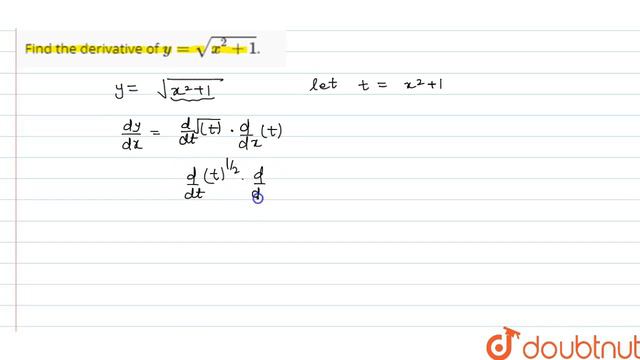 Find the derivative of y = √(x² + 1).
y = √(x²+1)    let t = x²+1
dy/dx = d/dt √(t) · d/dx (t)
d/dt (t)^1/2 · d/d
doubtnut